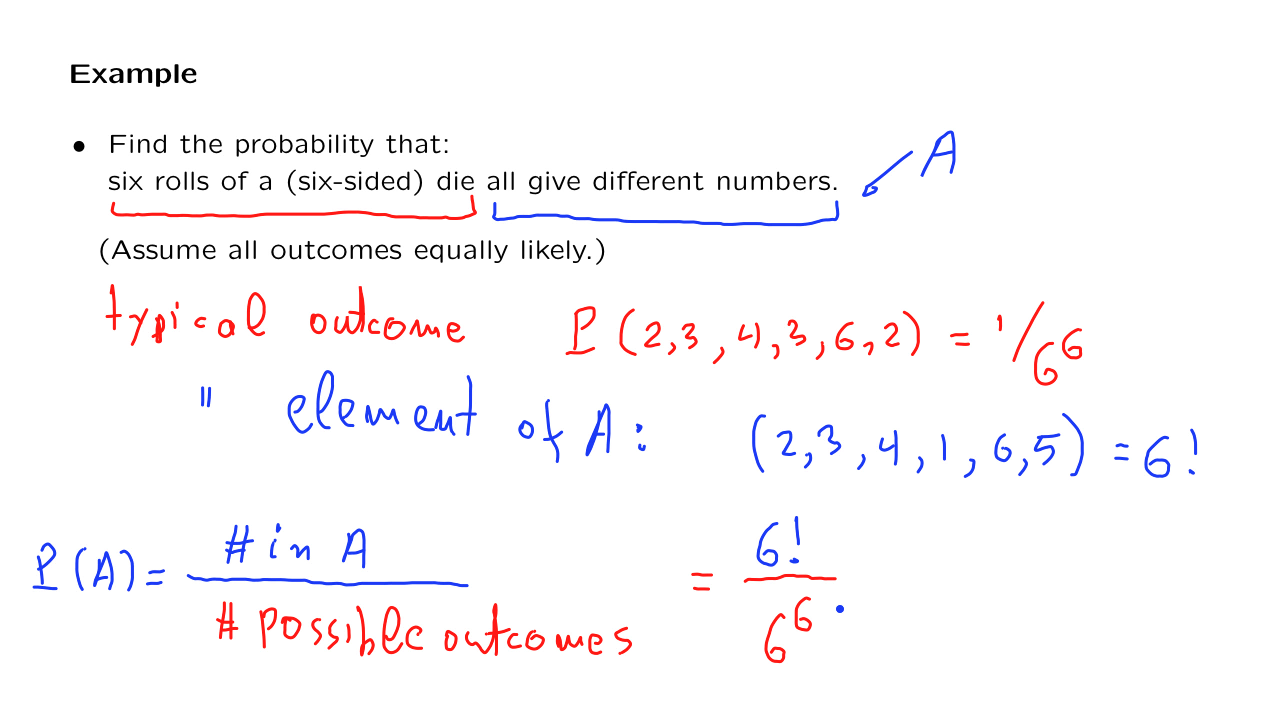 Example
• Find the probability that:
six rolls of a (six-sided) die all give different numbers.
A
(Assume all outcomes equally likely.)
typical outcome P(2,3,4,3,6,2) = 1/6^6
" element of A: (2,3,4,1,6,5) = 6!
P(A) = # in A / # possible outcomes = 6! / 6^6 .